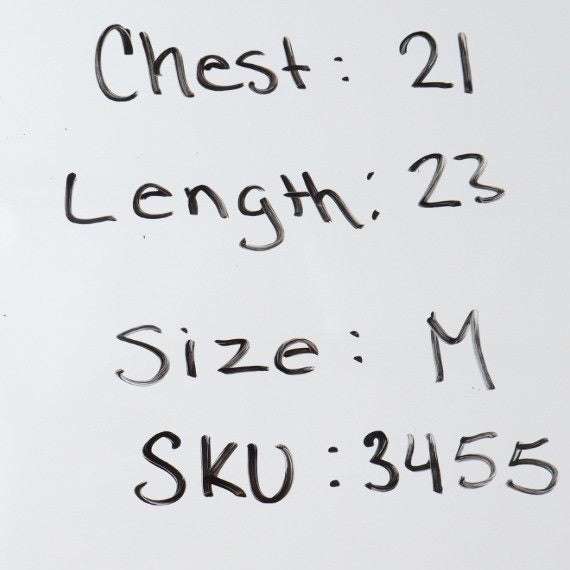 Chest: 21
Length: 23
Size: M
SKU: 3455